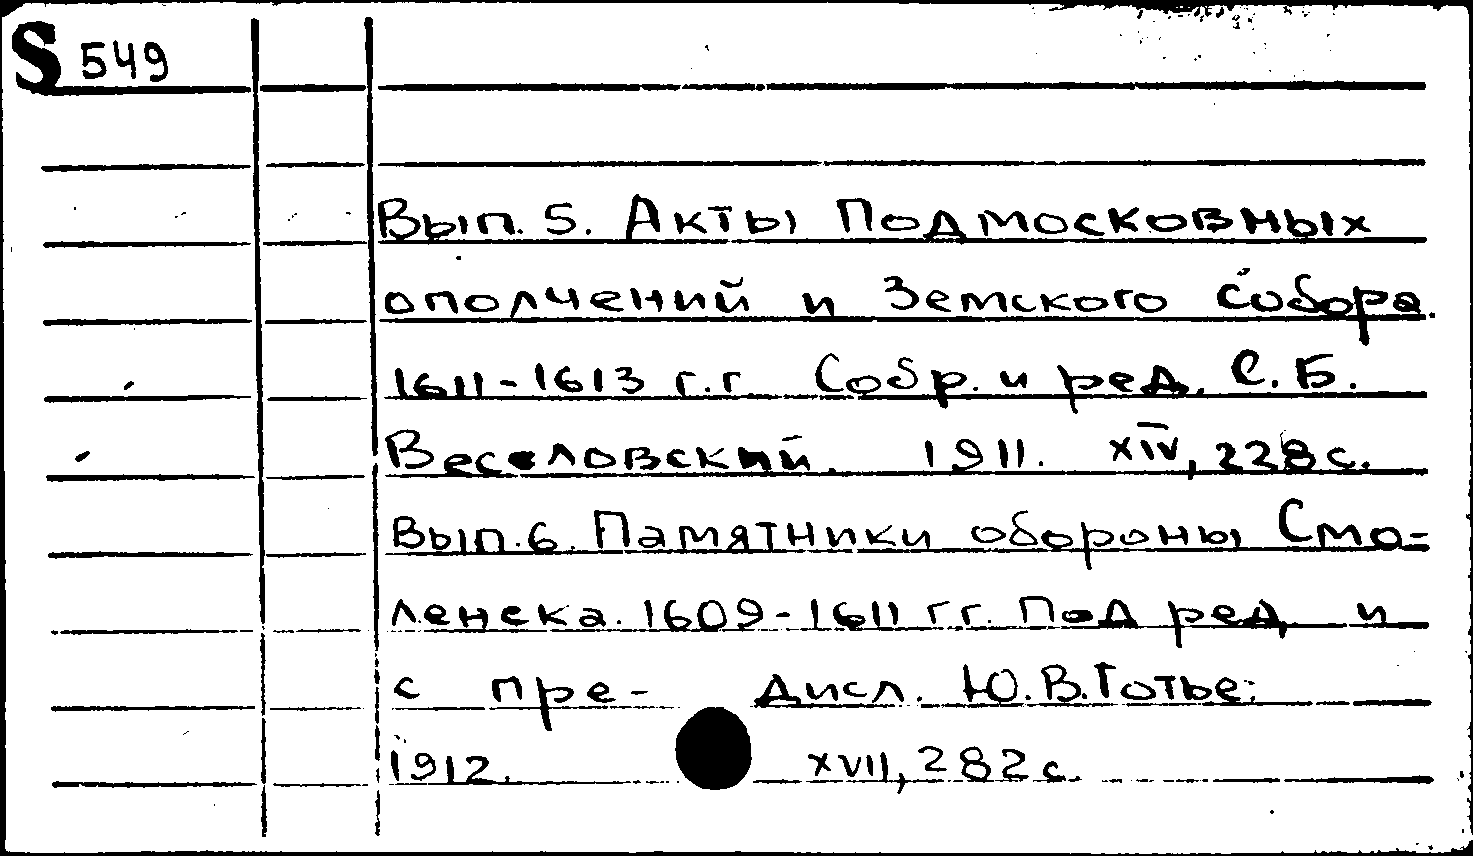 S 549
Вып. 5. Акты Подмосковных
ополчений и Земского Собора.
1611-1613 г.г Собр. и ред. С.Б.
Веселовский. 1911. XIV, 228 с.
Вып. 6. Памятники обороны Смо=
ленска. 1609-1611 г.г. Под ред. и
с пре- дисл. Ю.В. Готье.
1912. XVII, 282 с.